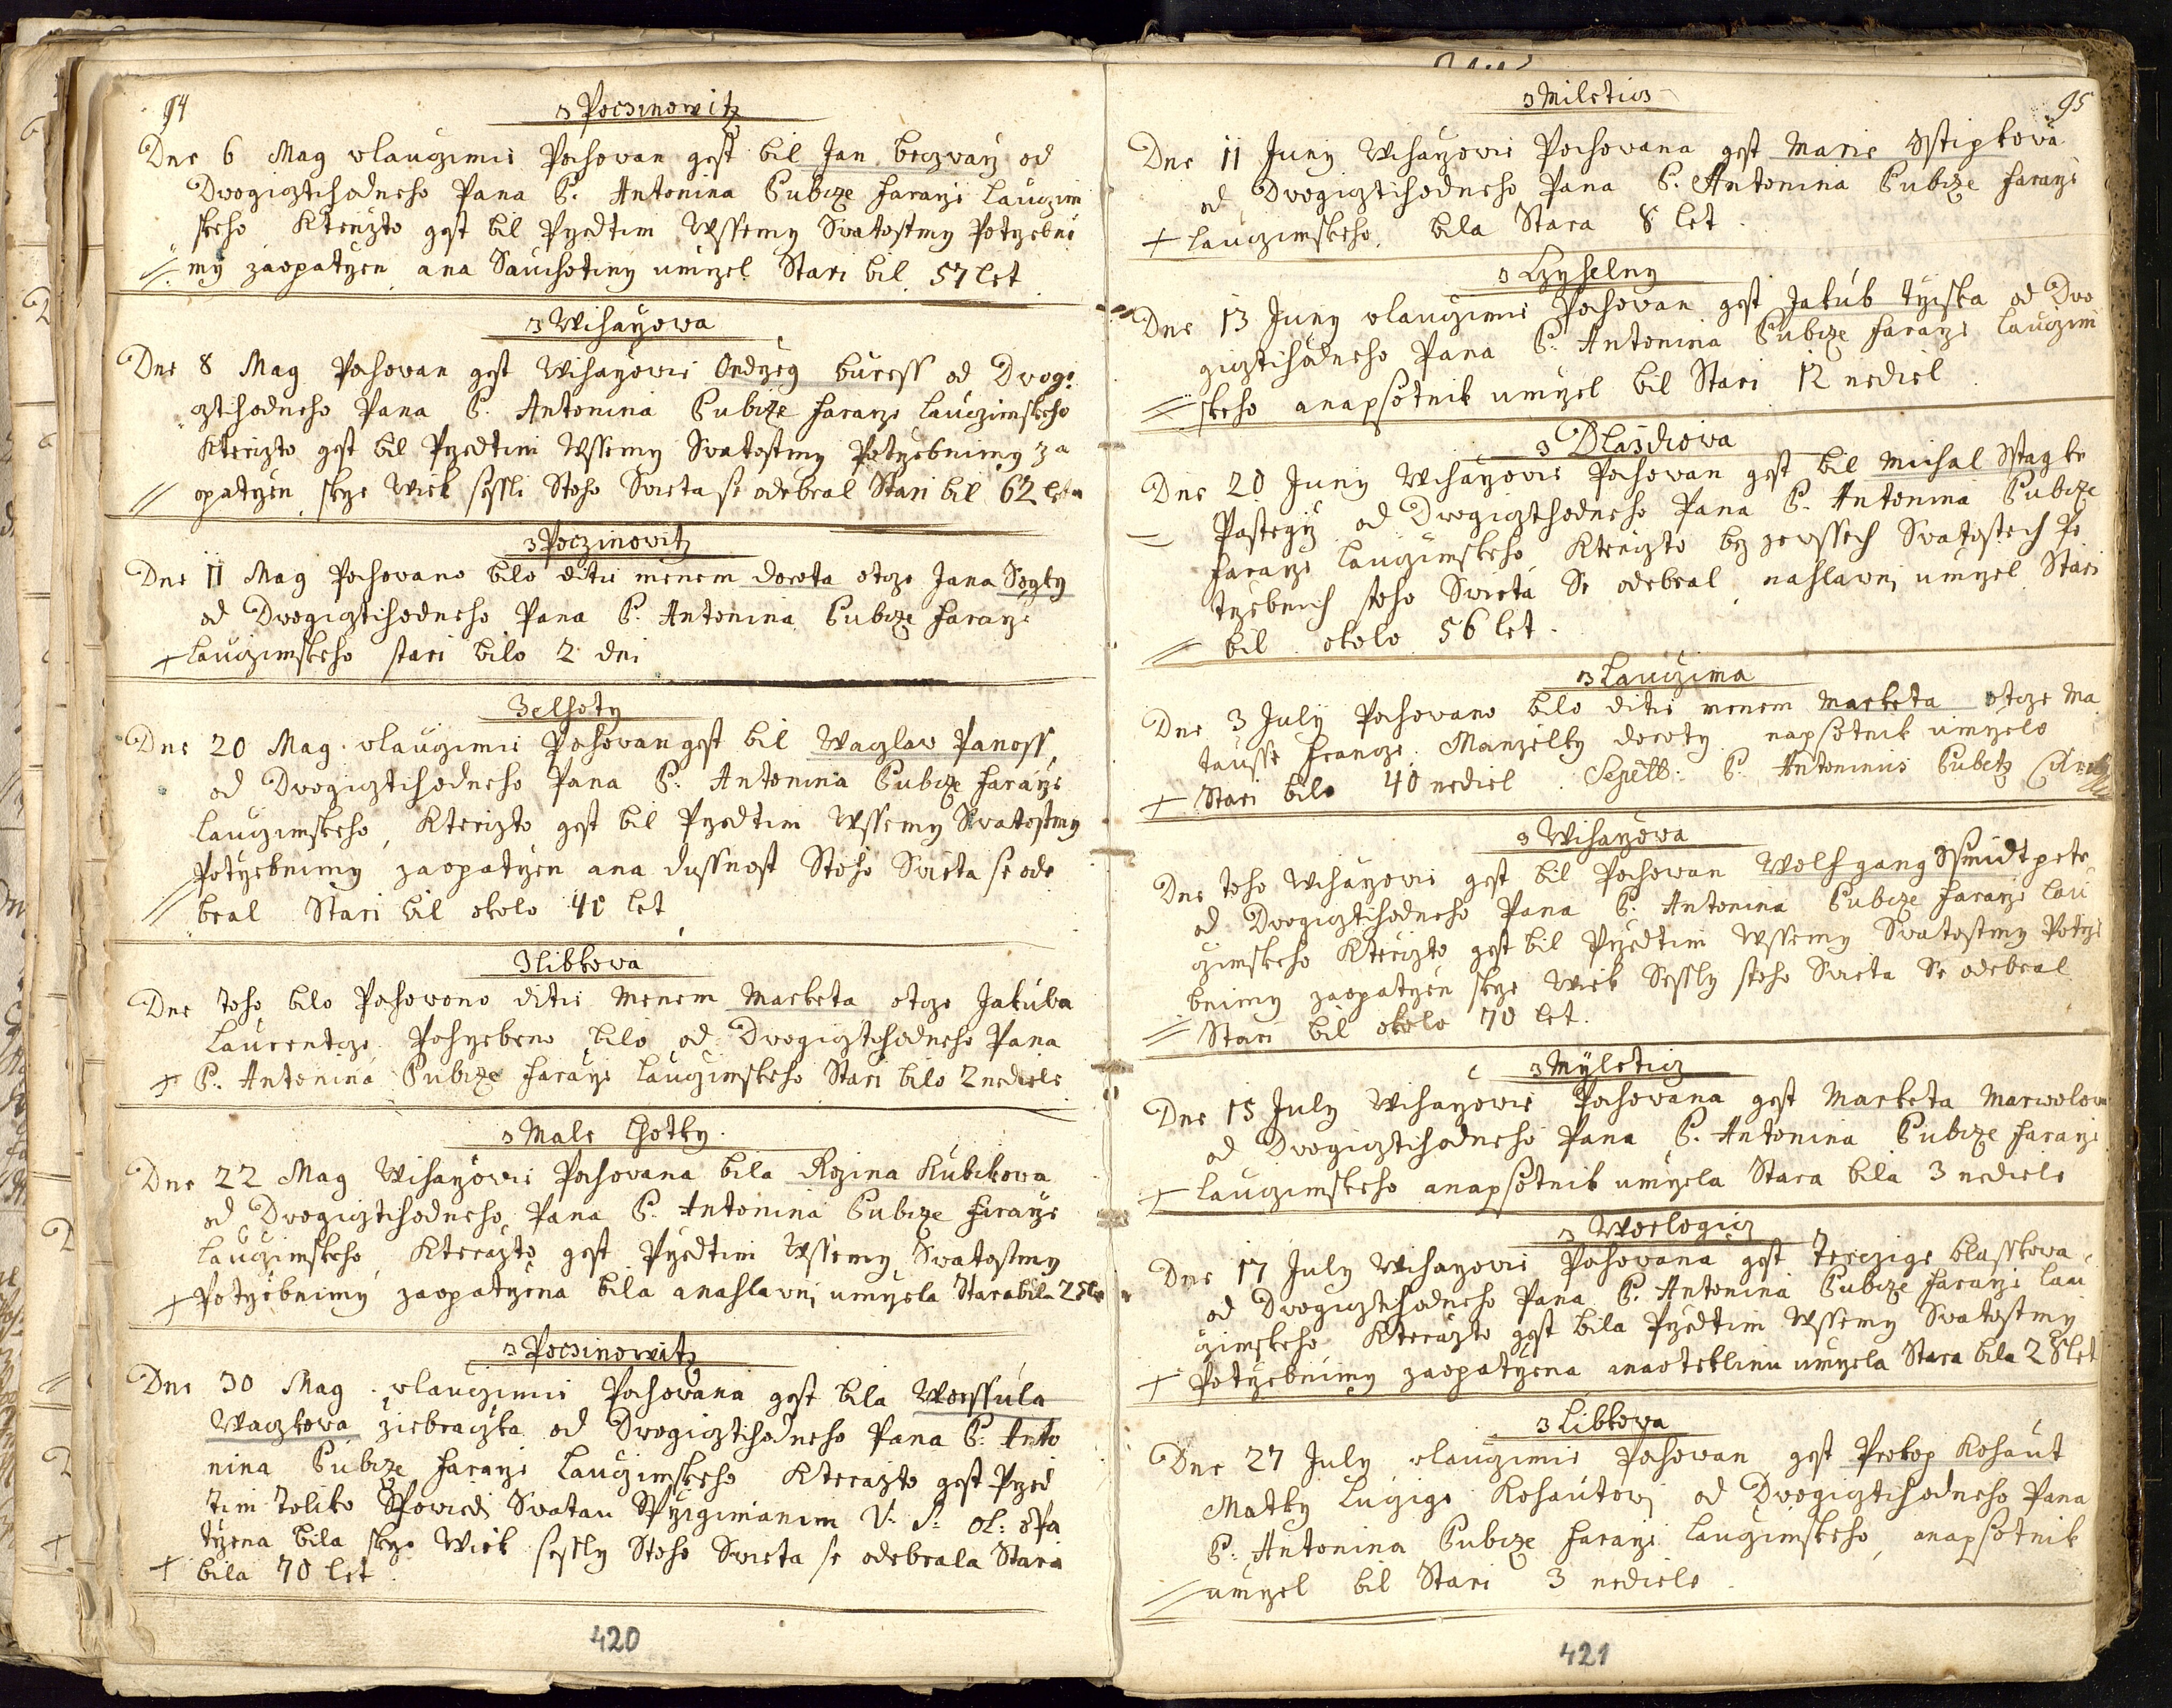 94
z Poczinowitz
Dne 6 Mag wlauczimie Pochowan gest bil Jan beczwarz od
Dwogicztihodneho Pana P. Antonina Cubicze Faraze Lauczim
skeho Kterizto gest bil Przedtim Wssemy Swatostmy Potrzebni
my zaopatrzen ana Sauchotiny umrzel Stari bil 57 let
z Wiharzowa
Dne 8 Mag Pochowan gest Wiharzowie Ondrzeg buress od Dwogi
cztihodneho Pana P. Antonina Cubicze Faraze Lauczimskeho
Kterizto gest bil Przedtim Wssemy Swatostmy Potrzebnimy za
opatrzen skrze Wiek sessli Stoho Swieta se odebral Stari bil 62 leta
z Poczinowitz
Dne 11 Mag Pochowano bilo ditie menem dorota otcze Jana
od Dwogicztihodneho Pana P. Antonina Cubicze Faraze
Lauczimskeho stari bilo 2 dni
Zelhoty
Dne 20 Mag wlauczimie Pochowan gest bil Waczlaw Panoss
od Dwogicztihodneho Pana P. Antonina Cubicze Faraze
Lauczimskeho, Kterizto gest bil Przedtim Wssemy Swatostmy
Potrzebnimy zaopatrzen ana dussnost Stoho Swieta se ode
bral Stari bil okolo 40 let
Zlibkowa
Dne toho bilo Pochowono ditie Menem Marketa otcze Jakuba
Laurentcze Pohrzebeno bilo od Dwogicztihodneho Pana
P. Antonina Cubicze Faraze Lauczimskeho Stari bilo 2 nediele
z Male Lhotky
Dne 22 Mag Wiharzowie Pochowana bila Rozina Kubikowa
od Dwogicztihodneho Pana P. Antonina Cubicze Faraze
Lauczimskeho, Kterazto gest Przedtim Wssemy Swatostmy
Potrzebnimy zaopatrzena bila anahlawni umrzela Stara bila 25 let
z Poczinowitz
Dne 30 Mag wlauczimie Pochowana gest bila Worssula
Waczkowa ziebraczka od Dwogicztihodneho Pana P. Anto
nina Cubicze Faraze Lauczimskeho Kterazto gest Przed
tim toliko Spowiedi Swatau Sprzigimanim V: S: ol: opa
trzena bila skrze Wiek sessly Stoho Swieta se odebrala Stara
bila 70 let
420
95
z Mileticz
Dne 11 Juny Wiharzowie Pochowana gest Marie Sstipkowa
od Dwogicztihodneho Pana P. Antonina Cubicze Faraze
Lauczimskeho, bila Stara 8 let
z Lzyhelny
Dne 13 Juny wlauczimie Pochowan gest Jakub tyiska od Dwo
gicztihodneho Pana P. Antonina Cubicze Faraze Lauczim
skeho anapsotnik umrzel bil Stari 12 nediel
z Dlasdiowa
Dne 20 Juny Wiharzowie Pochowan gest bil Michal
Pasterzy od Dwogicztihodneho Pana P. Antonina Cubicze
Faraze Lauczimskeho, Kterizto bez zewssech Swatostech Po
trzebnich stoho Swieta Se odebral, nahlawni umrzel Stari
bil okolo 56 let
z Lauczima
Dne 3 July Pochowano bilo ditie menem Marketa otcze Ma
tausse Francze Manzelky doroty napsotnik umrzelo
Stari bilo 40 nediel Sepelt: P. Antoninus Cubetz
z Wiharzowa
Dne toho Wiharzowie gest bil Pochowan Wolfgang Ssmidtpetr
od Dwogicztihodneho Pana P. Antonina Cubicze Faraze Lau
czimskeho Kterizto gest bil Przedtim Wssemy Swatostmy Potrze
bnimy zaopatrzen skrze Wiek Sessly stoho Swieta Se odebral
Stari bil okolo 70 let
z Myleticz
Dne 15 July Wiharzowie Pochowana gest Marketa Marwolowa
od Dwogicztihodneho Pana P. Antonina Cubicze Faraze
Lauczimskeho anapsotnik umrzela Stara bila 3 nediele
z Worlogicz
Dne 17 July Wiharzowie Pochowana gest Terezige blasskowa
od Dwogicztihodneho Pana P. Antonina Cubicze Faraze Lau
czimskeho Kterazto gest bila Przedtim Wssemy Swatostmy
Potrzebnimy zaopatrzena anaoteklinu umrzela Stara bila 28 let
z Libkowa
Dne 27 July wlauczimie Pochowan gest Prokop Kohaut
Matky Luczige Kohautowi od Dwogicztihodneho Pana
P. Antonina Cubicze Faraze Lauczimskeho, anapsotnik
umrzel bil Stari 3 nediele
421